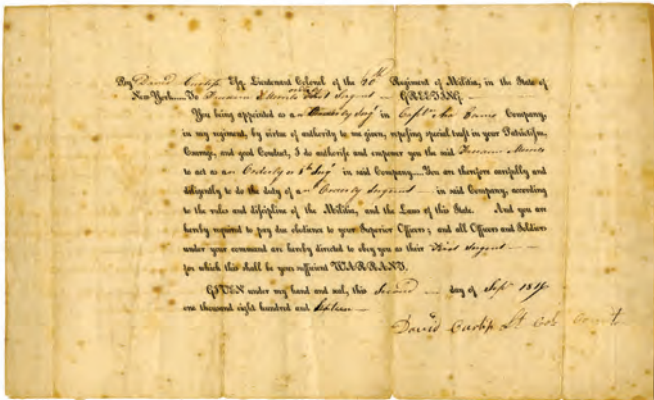 By David Curtiss Esq. Lieutenant Colonel of the 60th Regiment of Militia, in the State of
New-York— To Truman First Sergent — GREETING.
You being appointed as a Orderly Serj in Capt Company,
in my regiment, by virtue of authority to me given, reposing special trust in your Patriotism,
Courage, and good Conduct, I do authorise and empower you the said Truman
to act as an Orderly or 1st Serj in said Company.—You are therefore carefully and
diligently to do the duty of an Orderly Sergent — in said Company, according
to the rules and discipline of the Militia, and the Laws of this State. And you are
hereby required to pay due obedience to your Superior Officers; and all Officers and Soldiers
under your command are hereby directed to obey you as their First Sergent —
for which this shall be your sufficient WARRANT.
GIVEN under my hand and seal, this Second — day of Sept
one thousand eight hundred and
David Curtiss Lt Col